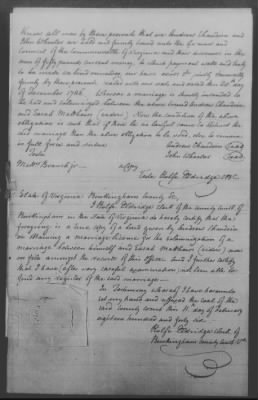 Know all men by these presents that we Andrew Chandoin and
John Wheeler are held and firmly bound unto the Governor and
Council of the Commonwealth of Virginia and their successors in the
sum of fifty pounds current money, to which payment well and truly
to be made we bind ourselves, our heirs &c jointly severally
firmly by these presents sealed with our seals and dated this day
of December 178 Whereas a marriage is shortly intended to
be had and solemnized between the above bound Andrew Chandoin
and Sarah Matthews (widow) Now the condition of the above
obligation is such that if there be no lawful cause to obstruct the
said marriage then the above obligation to be void, else to remain
in full force and virtue
Andrew Chandoin Seal
Teste John Wheeler Seal
Branch jr. a Copy
Teste Rolfe Eldridge
State of Virginia Buckingham County Sc,
I Rolfe Eldridge Clerk of the County Court of
Buckingham in the State of Virginia do hereby certify that the
foregoing is a true copy of a bond given by Andrew Chandoin
on obtaining a marriage license for the solemnization of a
marriage between himself and Sarah Matthews (widow) now
on file amongst the records of this office And I further certify
that I have, after very careful examination, not been able to
find any register of the said marriage
In Testimony whereof I have hereunto
set my hand and affixed the seal of the
said County Court this day of February
eighteen hundred and forty six
Rolfe Eldridge Clerk of
Buckingham County Court